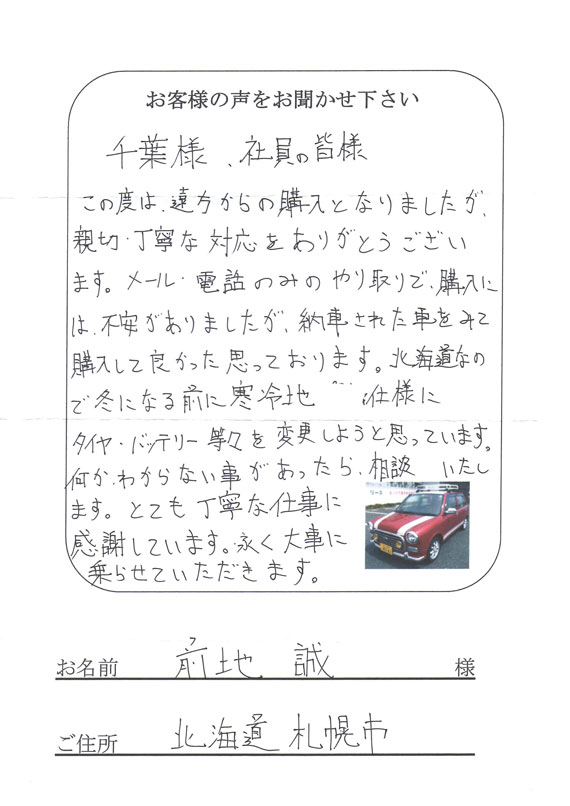 お客様の声をお聞かせ下さい
千葉様、社員の皆様
この度は、遠方からの購入となりましたが、
親切・丁寧な対応をありがとうござい
ます。メール・電話のみのやり取りで、購入に
は、不安がありましたが、納車された車をみて
購入して良かった思っております。北海道なの
で冬になる前に寒冷地 仕様に
タイヤ・バッテリー等々を変更しようと思っています。
何か、わからない事があったら、相談 いたし
ます。とても丁寧な仕事に
感謝しています。永く大事に
乗らせていただきます。
お名前 前地 誠 様
ご住所 北海道 札幌市